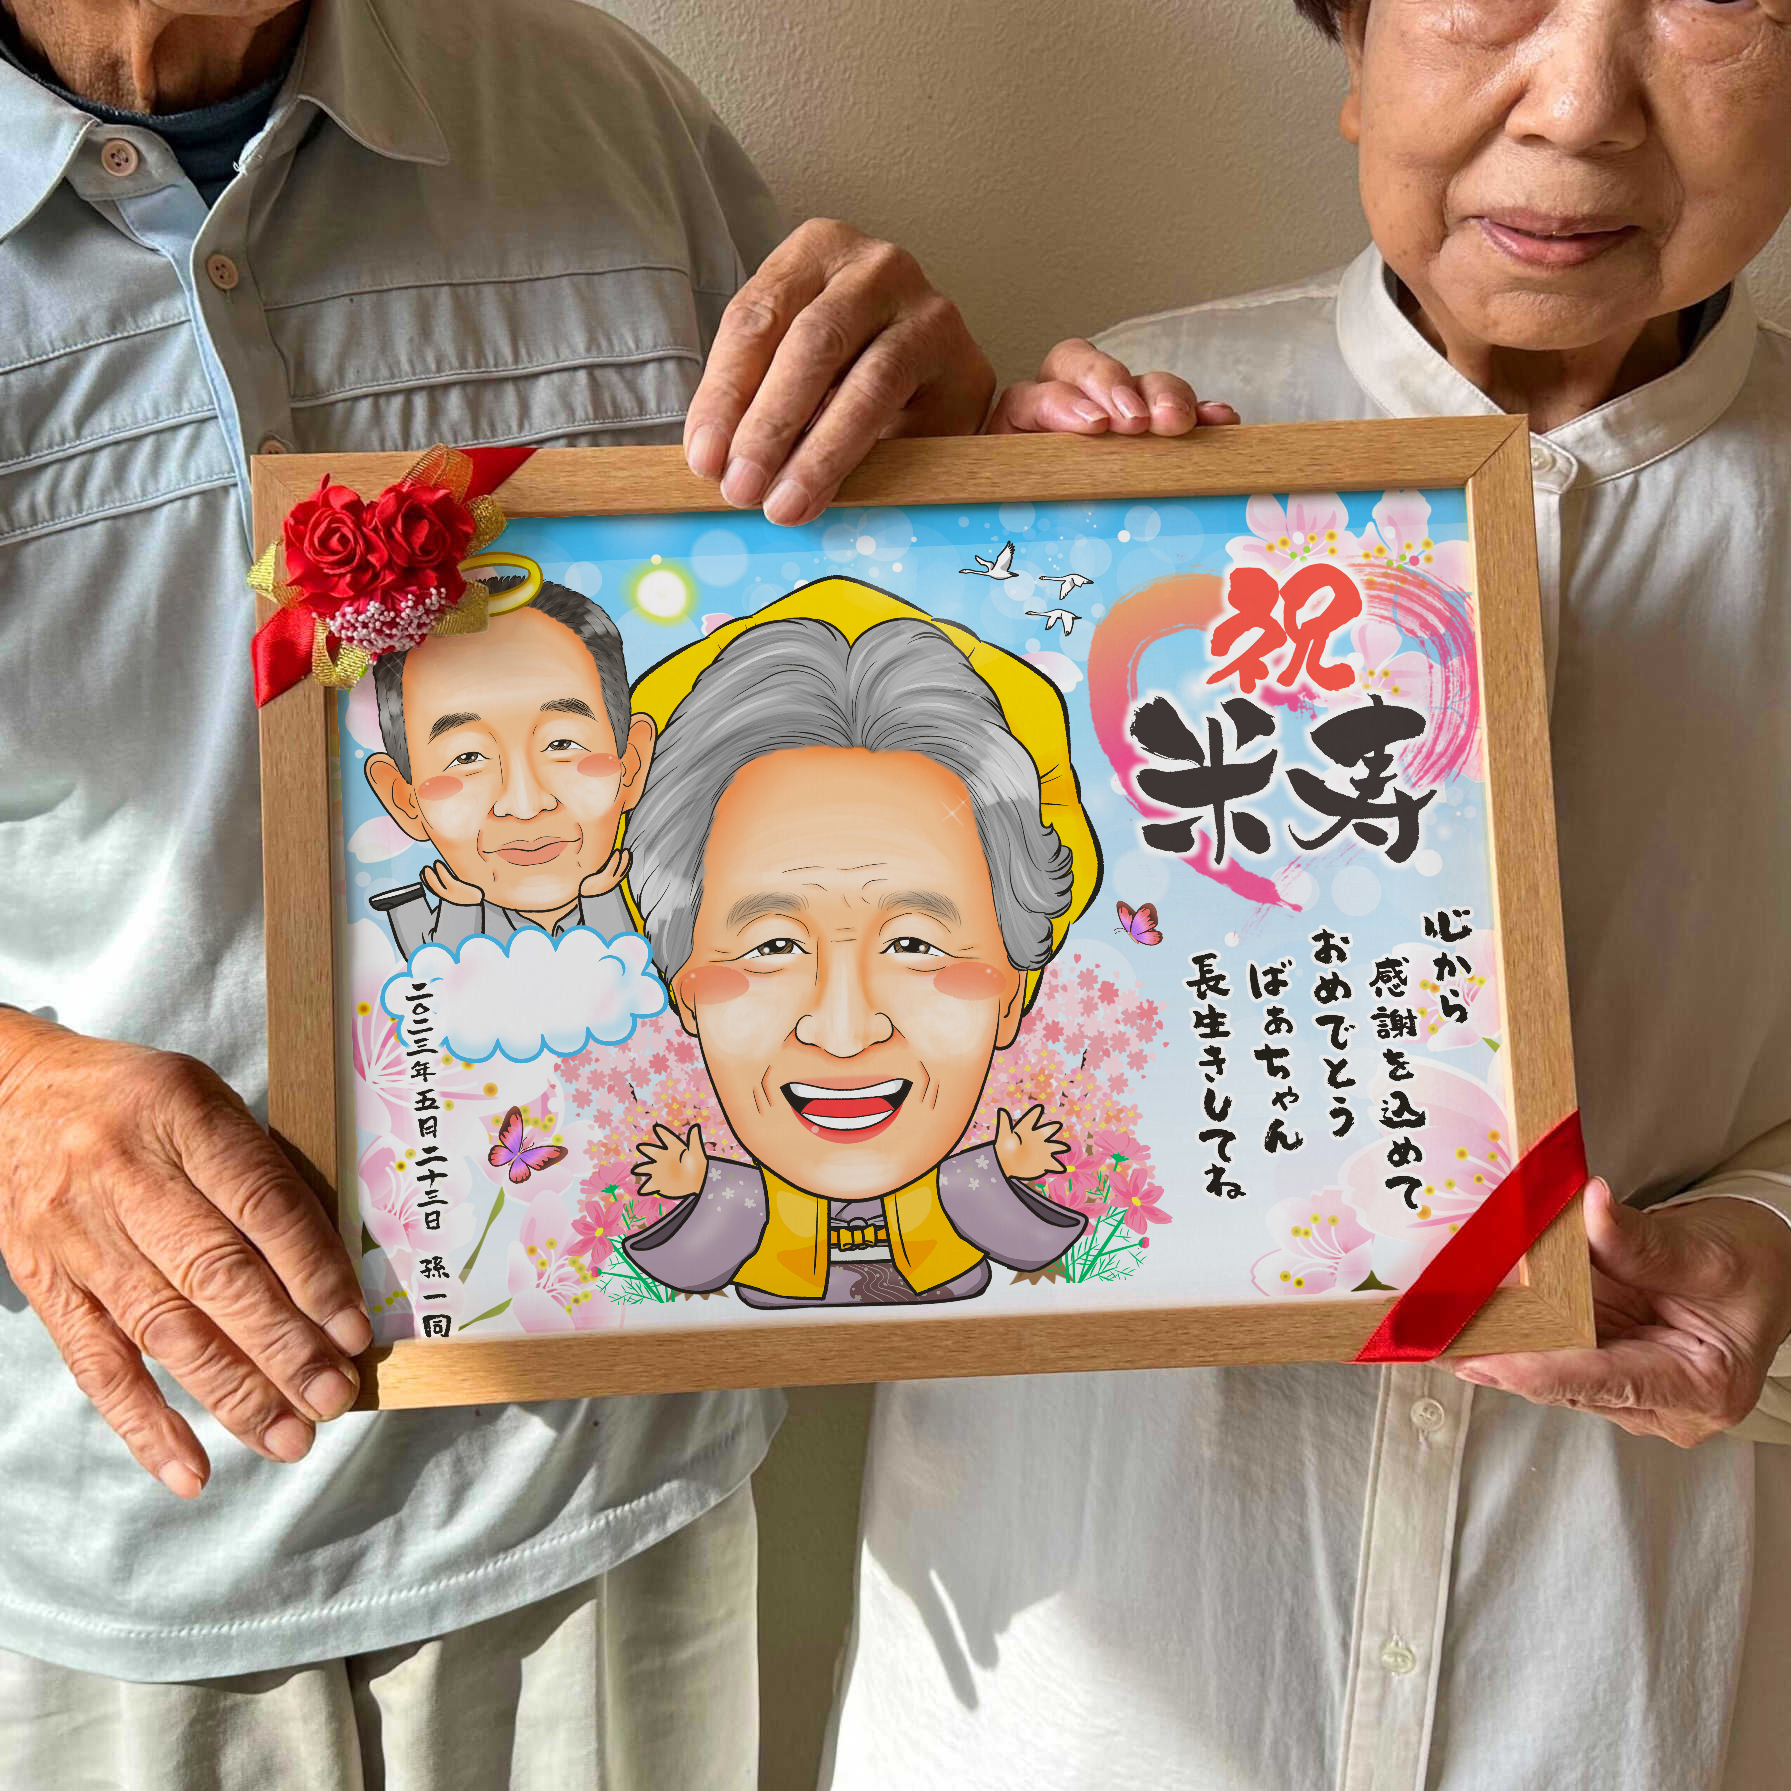 祝
米寿
心から
感謝を込めて
おめでとう
ばぁちゃん
長生きしてね
二〇二三年五月二十三日 孫一同